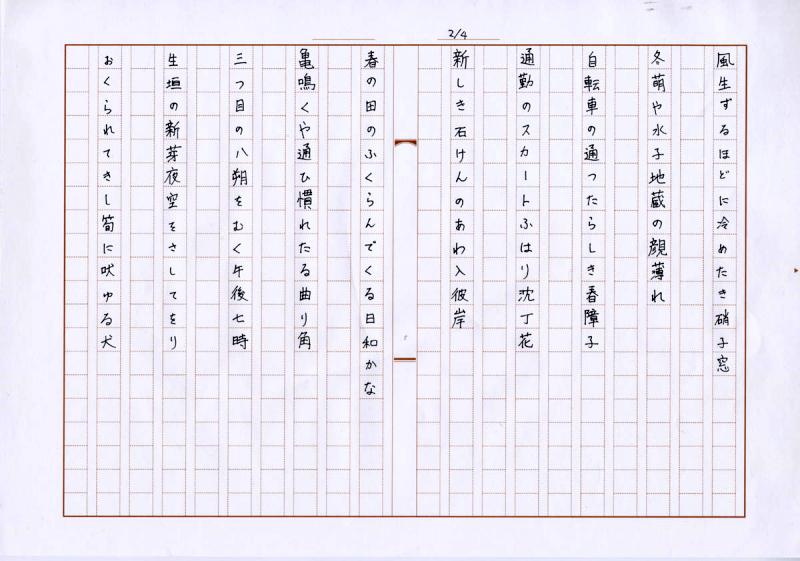 2/4
風生ずるほどに冷めたき硝子窓
冬萌や水子地蔵の顔薄れ
自転車の通つたらしき春障子
通勤のスカートふはり沈丁花
新しき石けんのあわ入彼岸
春の田のふくらんでくる日和かな
亀鳴くや通ひ慣れたる曲り角
三つ目の八朔をむく午後七時
生垣の新芽夜空をさしてをり
おくられてきし筍に吠ゆる犬